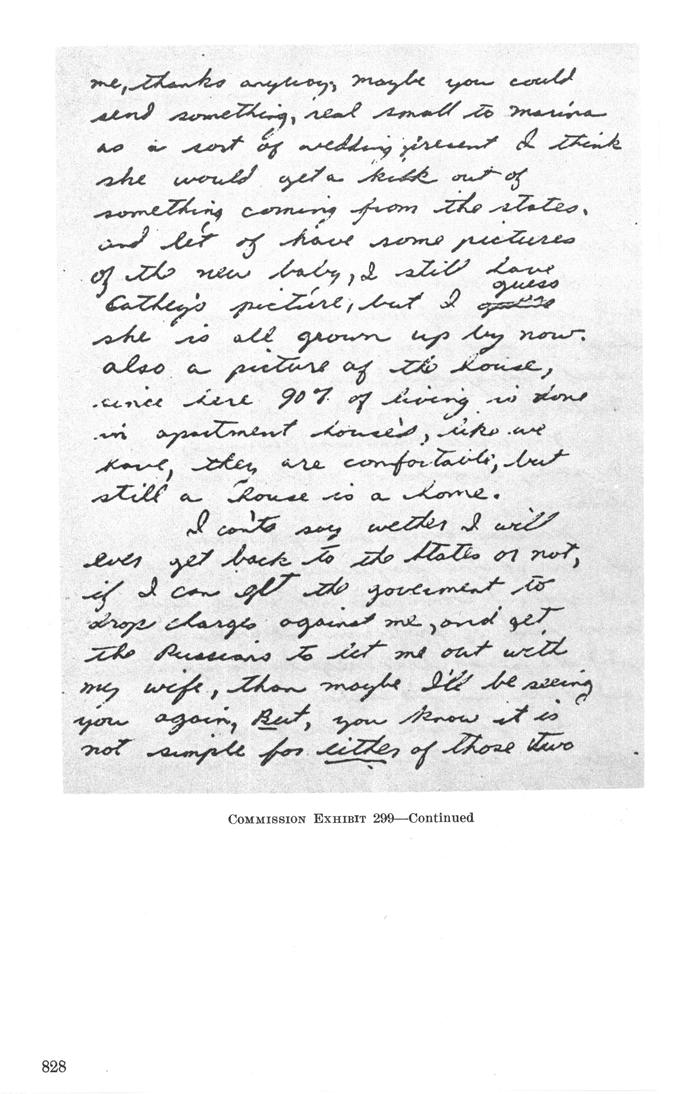 me, thanks anyway, maybe you could
send something, real small to marina
as a sort of wedding present I think
she would get a kick out of
something coming from the states.
and let of have some pictures
of the new baby, I still have
guess
Cathey's picture, but I
she is all grown up by now.
also a picture of the house,
since here 90% of living is done
in apartment house's, like we
have, they are comfortable, but
still a house is a home.
I can't say wether I will
ever get back to the States or not,
if I can get the goverment to
drop charges against me, and get
the Russians to let me out with
my wife, than maybe I'll be seeing
you again, But, you know it is
not simple for either of those two
COMMISSION EXHIBIT 299—Continued
828